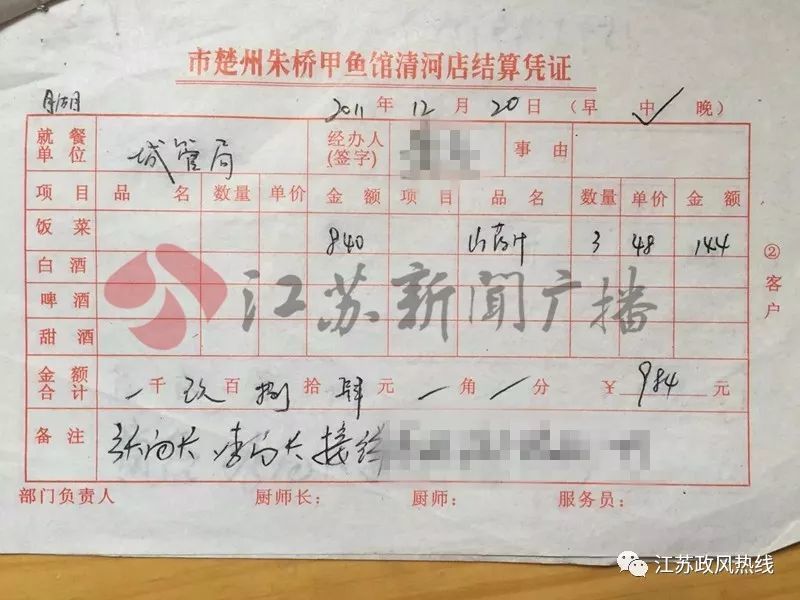 市楚州朱桥甲鱼馆清河店结算凭证
2011 年 12 月 20 日 (早 中 ✓ 晚)
就餐单位 城管局 经办人(签字) 事由
项目 品名 数量 单价 金额 项目 品名 数量 单价 金额
饭菜 840 山药汁 3 48 144
白酒
啤酒
甜酒
金额合计 千 玖 百 捌 拾 肆 元 角 分 ¥ 984 元
备注 张局长 李局长 接
部门负责人 厨师长: 厨师: 服务员:
②客户
江苏新闻广播
江苏政风热线